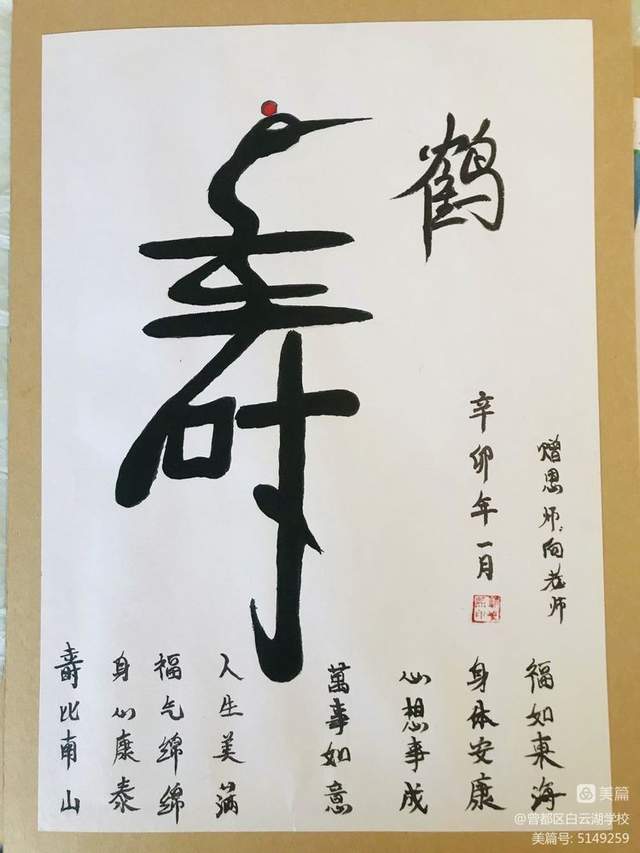 鹤
寿
赠恩师:向老师
辛卯年一月
福如東海
身体安康
心想事成
萬事如意
人生美满
福气绵绵
身心康泰
壽比南山
美篇
@曾都区白云湖学校
美篇号: 5149259